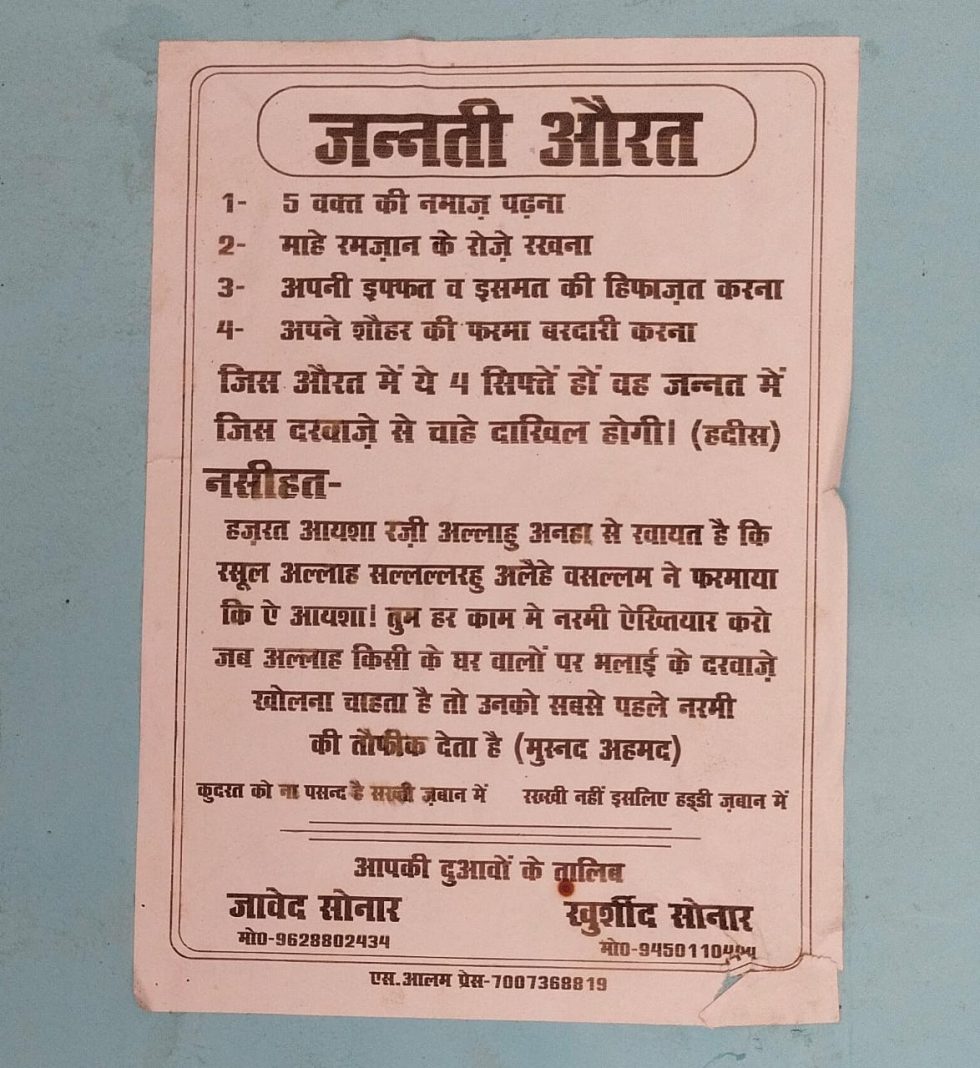 जन्नती औरत
1- 5 वक्त की नमाज़ पढ़ना
2- माहे रमज़ान के रोज़े रखना
3- अपनी इफ्फत व इसमत की हिफाज़त करना
4- अपने शौहर की फरमा बरदारी करना
जिस औरत में ये 4 सिफ्तें हों वह जन्नत में
जिस दरवाज़े से चाहे दाखिल होगी। (हदीस)
नसीहत-
हज़रत आयशा रज़ी अल्लाहु अनहा से रवायत है कि
रसूल अल्लाह सल्लल्लरहु अलैहे वसल्लम ने फरमाया
कि ऐ आयशा! तुम हर काम मे नरमी ऐख्तियार करो
जब अल्लाह किसी के घर वालों पर भलाई के दरवाज़े
खोलना चाहता है तो उनको सबसे पहले नरमी
की तौफीक देता है (मुस्नद अहमद)
कुदरत को ना पसन्द है सख्ती ज़बान में रख्खी नहीं इसलिए हड्डी ज़बान में
आपकी दुआवों के तालिब
जावेद सोनार खुर्शीद सोनार
मो0-9628802434 मो0-
एस.आलम प्रेस-7007368819